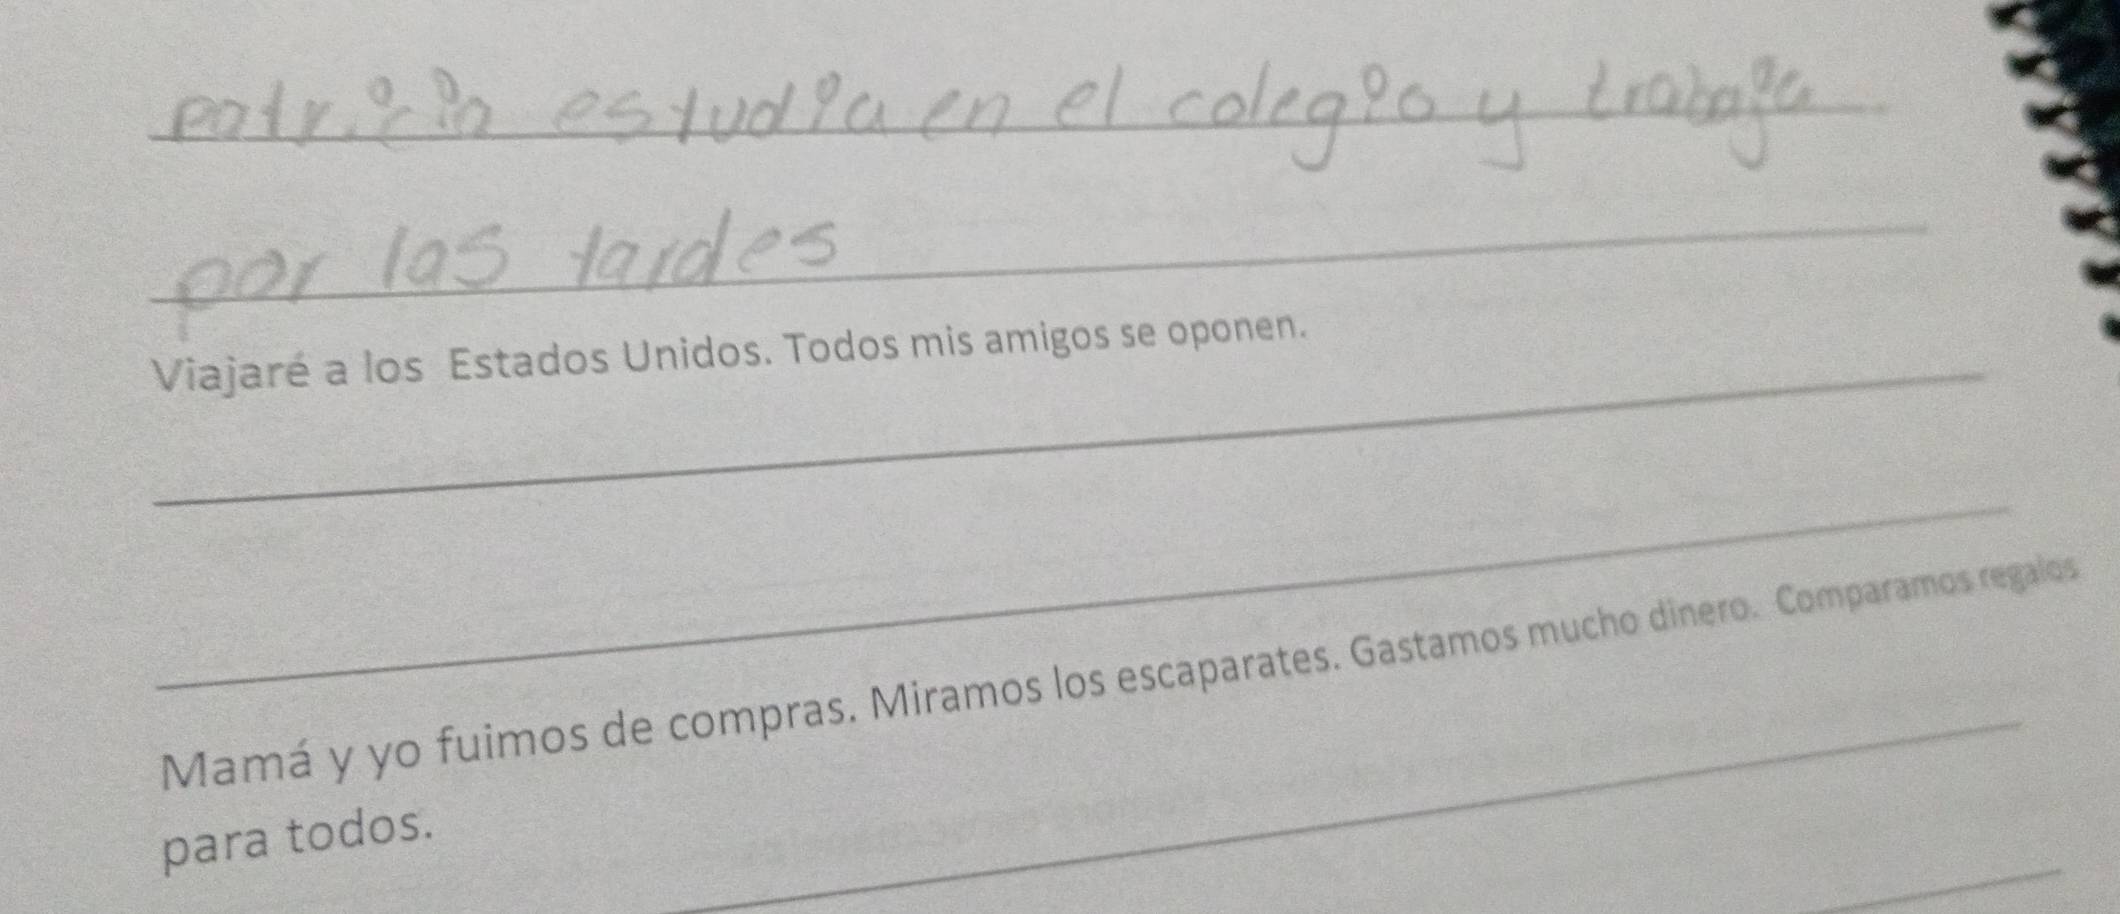 patricia estudia en el colegio y trabaja
por las tardes
Viajaré a los Estados Unidos. Todos mis amigos se oponen.
Mamá y yo fuimos de compras. Miramos los escaparates. Gastamos mucho dinero. Comparamos regalos
para todos.